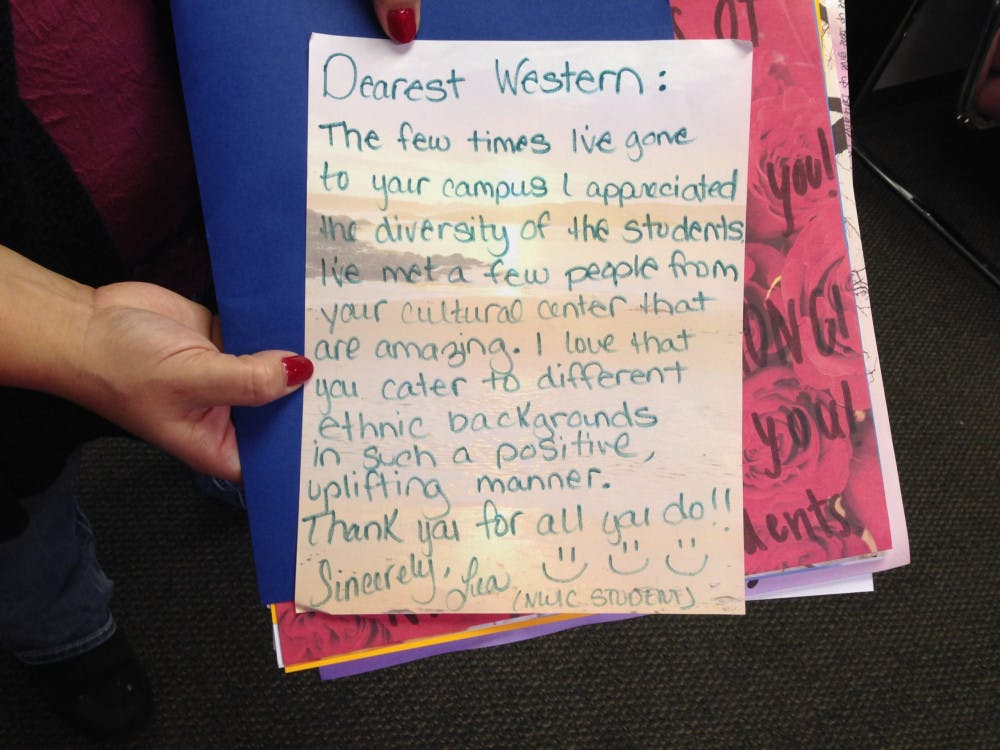 Dearest Western:
The few times I've gone
to your campus I appreciated
the diversity of the students
I've met a few people from
your cultural center that
are amazing. I love that
you cater to different
ethnic backgrounds
in such a positive,
uplifting manner.
Thank you for all you do!!
Sincerely, Lea
(NWIC STUDENT)
you!
you!